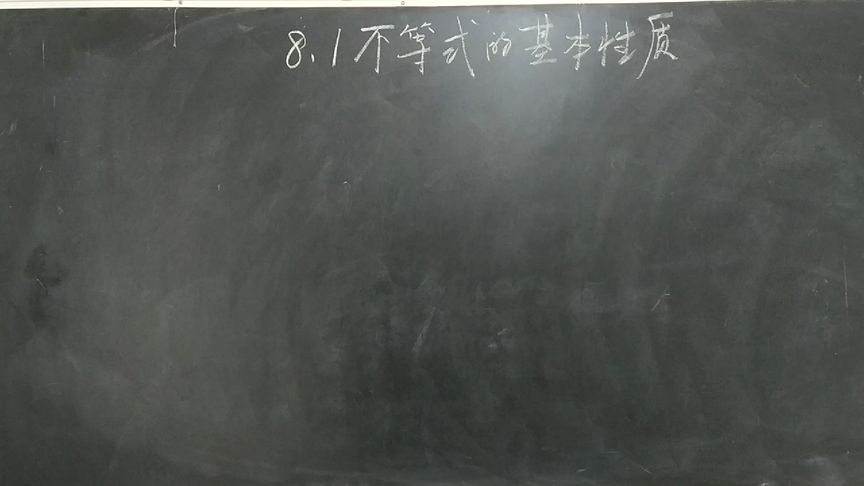 8.1不等式的基本性质